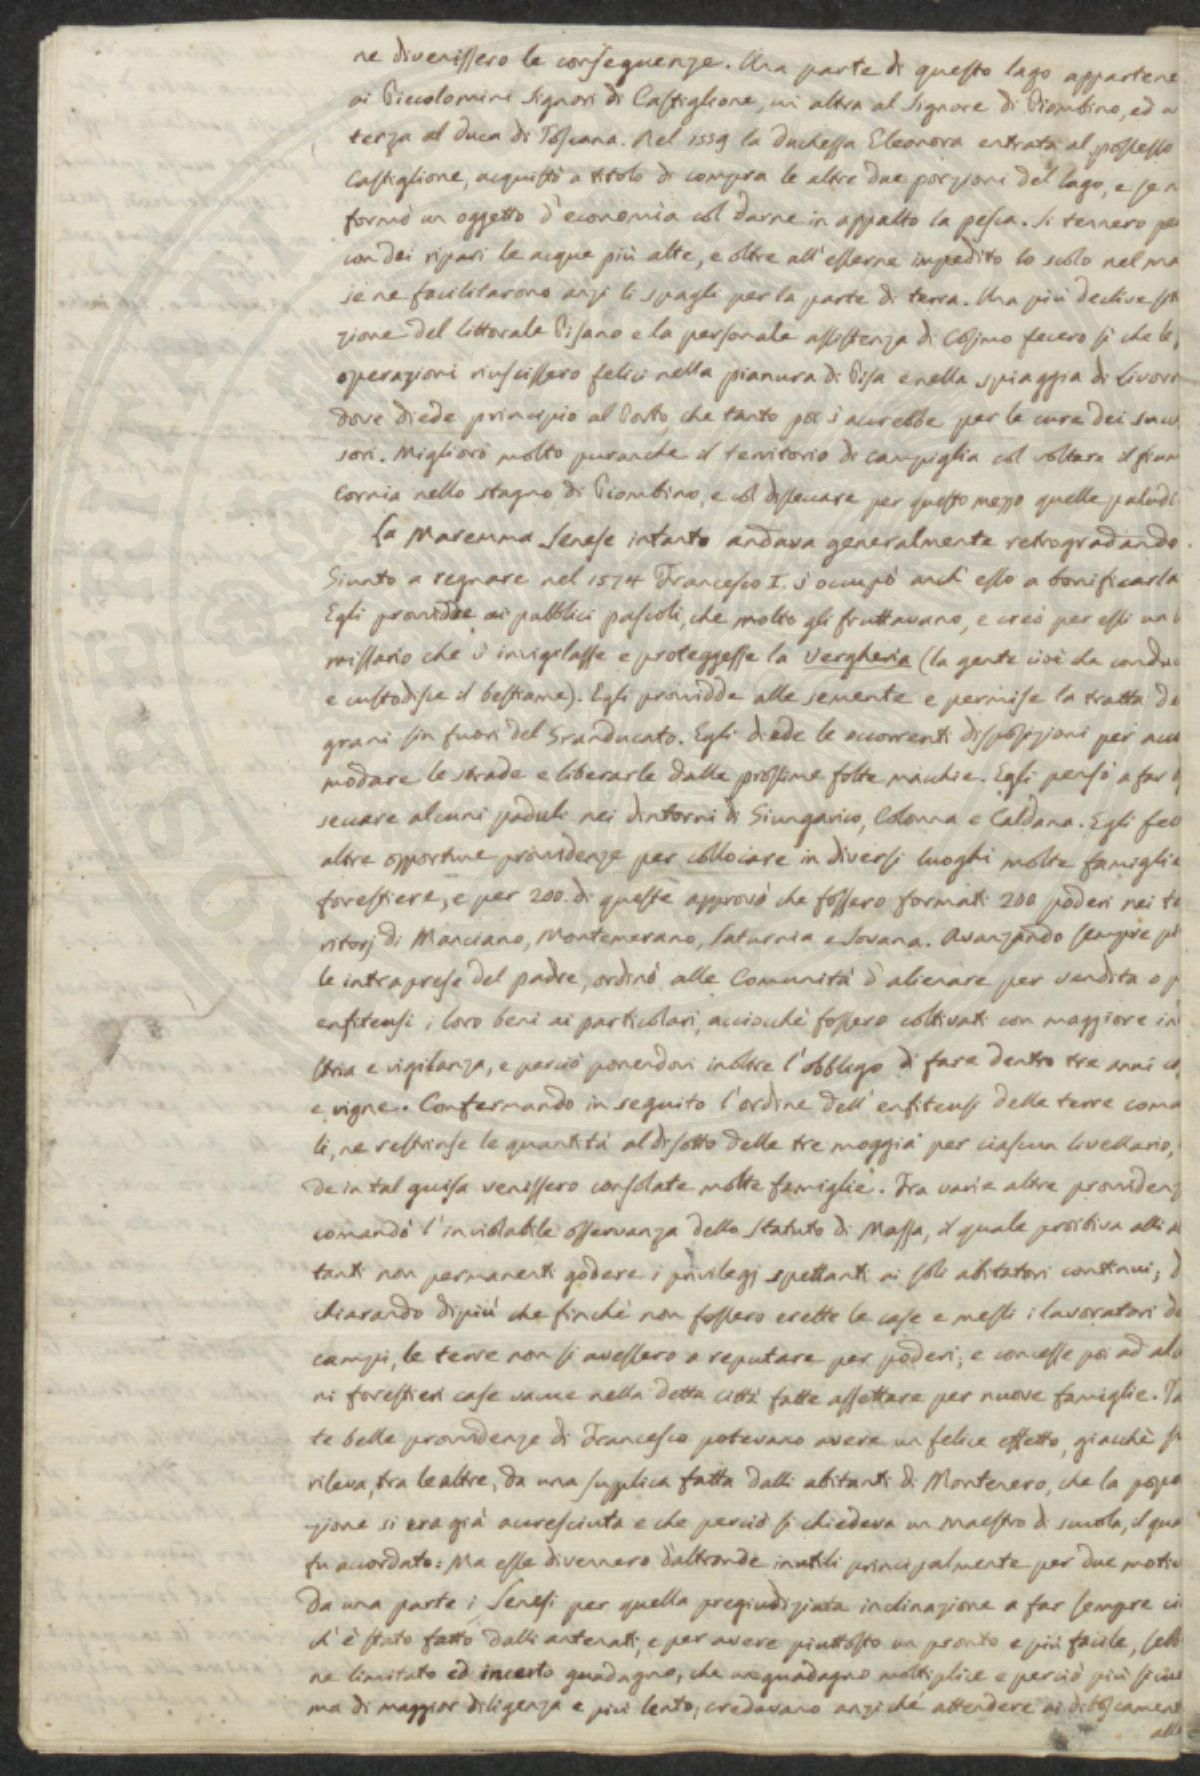 ne divenissero le conseguenze. Una parte di questo lago appartene
ai Piccolomini Signori di Castiglione, un altra al Signore di Piombino, ed u
terza al Duca di Toscana. Nel 1559 la duchessa Eleonora entrata al possesso
Castiglione, acquistò a titolo di compra le altre due porzioni del lago, e se n
formò un oggetto d'economia col darne in appalto la pesca. Si tennero pe
con dei ripari le acque più alte, e oltre all'esserne impedito lo scolo nel ma
se ne facilitarono anzi li spagli per la parte di terra. Una più declive
zione del littorale Pisano e la personale assistenza di Cosimo fecero sì che le
operazioni riuscissero felici nella pianura di Pisa e nella spiaggia di Livorn
dove diede principio al Porto che tanto poi s'accrebbe per le cure dei succe
sori. Migliorò molto puranche il territorio di Campiglia col voltare il fium
Cornia nello stagno di Piombino, e col disseccare per questo mezzo quelle paludi
La Maremma Senese intanto andava generalmente retrogradando.
Giunto a regnare nel 1574 Francesco I. s'occupò anch'esso a bonificarla
Egli providde ai pubblici pascoli, che molto gli fruttavano, e creò per essi un
missario che s'invigilasse e proteggesse la Vergheria (la gente cioè che conduc
e custodisce il bestiame). Egli providde alle semente e permise la tratta de
grani sin fuori del Granducato. Egli diede le occorrenti disposizioni per acco
modare le strade e liberarle dalle prossime folte macchie. Egli pensò a far d
seccare alcuni paduli nei dintorni di Giungarico, Colonna e Caldana. Egli fec
altre opportune providenze per collocare in diversi luoghi molte famiglie
forestiere, e per 200. di queste approvò che fossero formati 200 poderi nei te
ritorj di Manciano, Montemerano, Saturnia e Sovana. Avanzando sempre pi
le intraprese del padre, ordinò alle Comunità d'alienare per vendita o p
enfiteusi i loro beni ai particolari, acciochè fossero coltivati con maggiore in
stria e vigilanza, e perciò ponendovi inoltre l'obbligo di fare dentro tre anni
e vigne. Confermando in seguito l'ordine dell'enfiteusi delle terre comu
li, ne restrinse le quantità al disotto delle tre moggia per ciascun livellario,
de in tal guisa venissero consolate molte famiglie. Fra varie altre providenz
comandò l'inviolabile osservanza dello Statuto di Massa, il quale proibiva alli
tanti non permanenti godere i privilegj spettanti ai soli abitatori continui; d
chiarando dipiù che finchè non fossero erette le case e messi i lavoratori de
campi, le terre non si avessero a reputare per poderi; e concesse poi ad alc
ni forestieri case vacue nella detta città fatte assettare per nuove famiglie. Ta
te belle providenze di Francesco potevano avere un felice effetto, giacchè si
rileva, tra le altre, da una supplica fatta dalli abitanti di Montenero, che la popo
zione si era già accresciuta e che perciò si chiedeva un maestro di scuola, il qua
fu accordato: Ma esse divennero d'altronde inutili principalmente per due motiv
Da una parte i Senesi per quella pregiudiziata inclinazione a far sempre ci
ch'è stato fatto dalli antenati, e per avere piuttosto un pronto e più facile, seb
ne limitato ed incerto guadagno, che un guadagno moltiplice e perciò più sicu
ma di maggior diligenza e più lento, credevano anziché attendere ai diboscament
alle